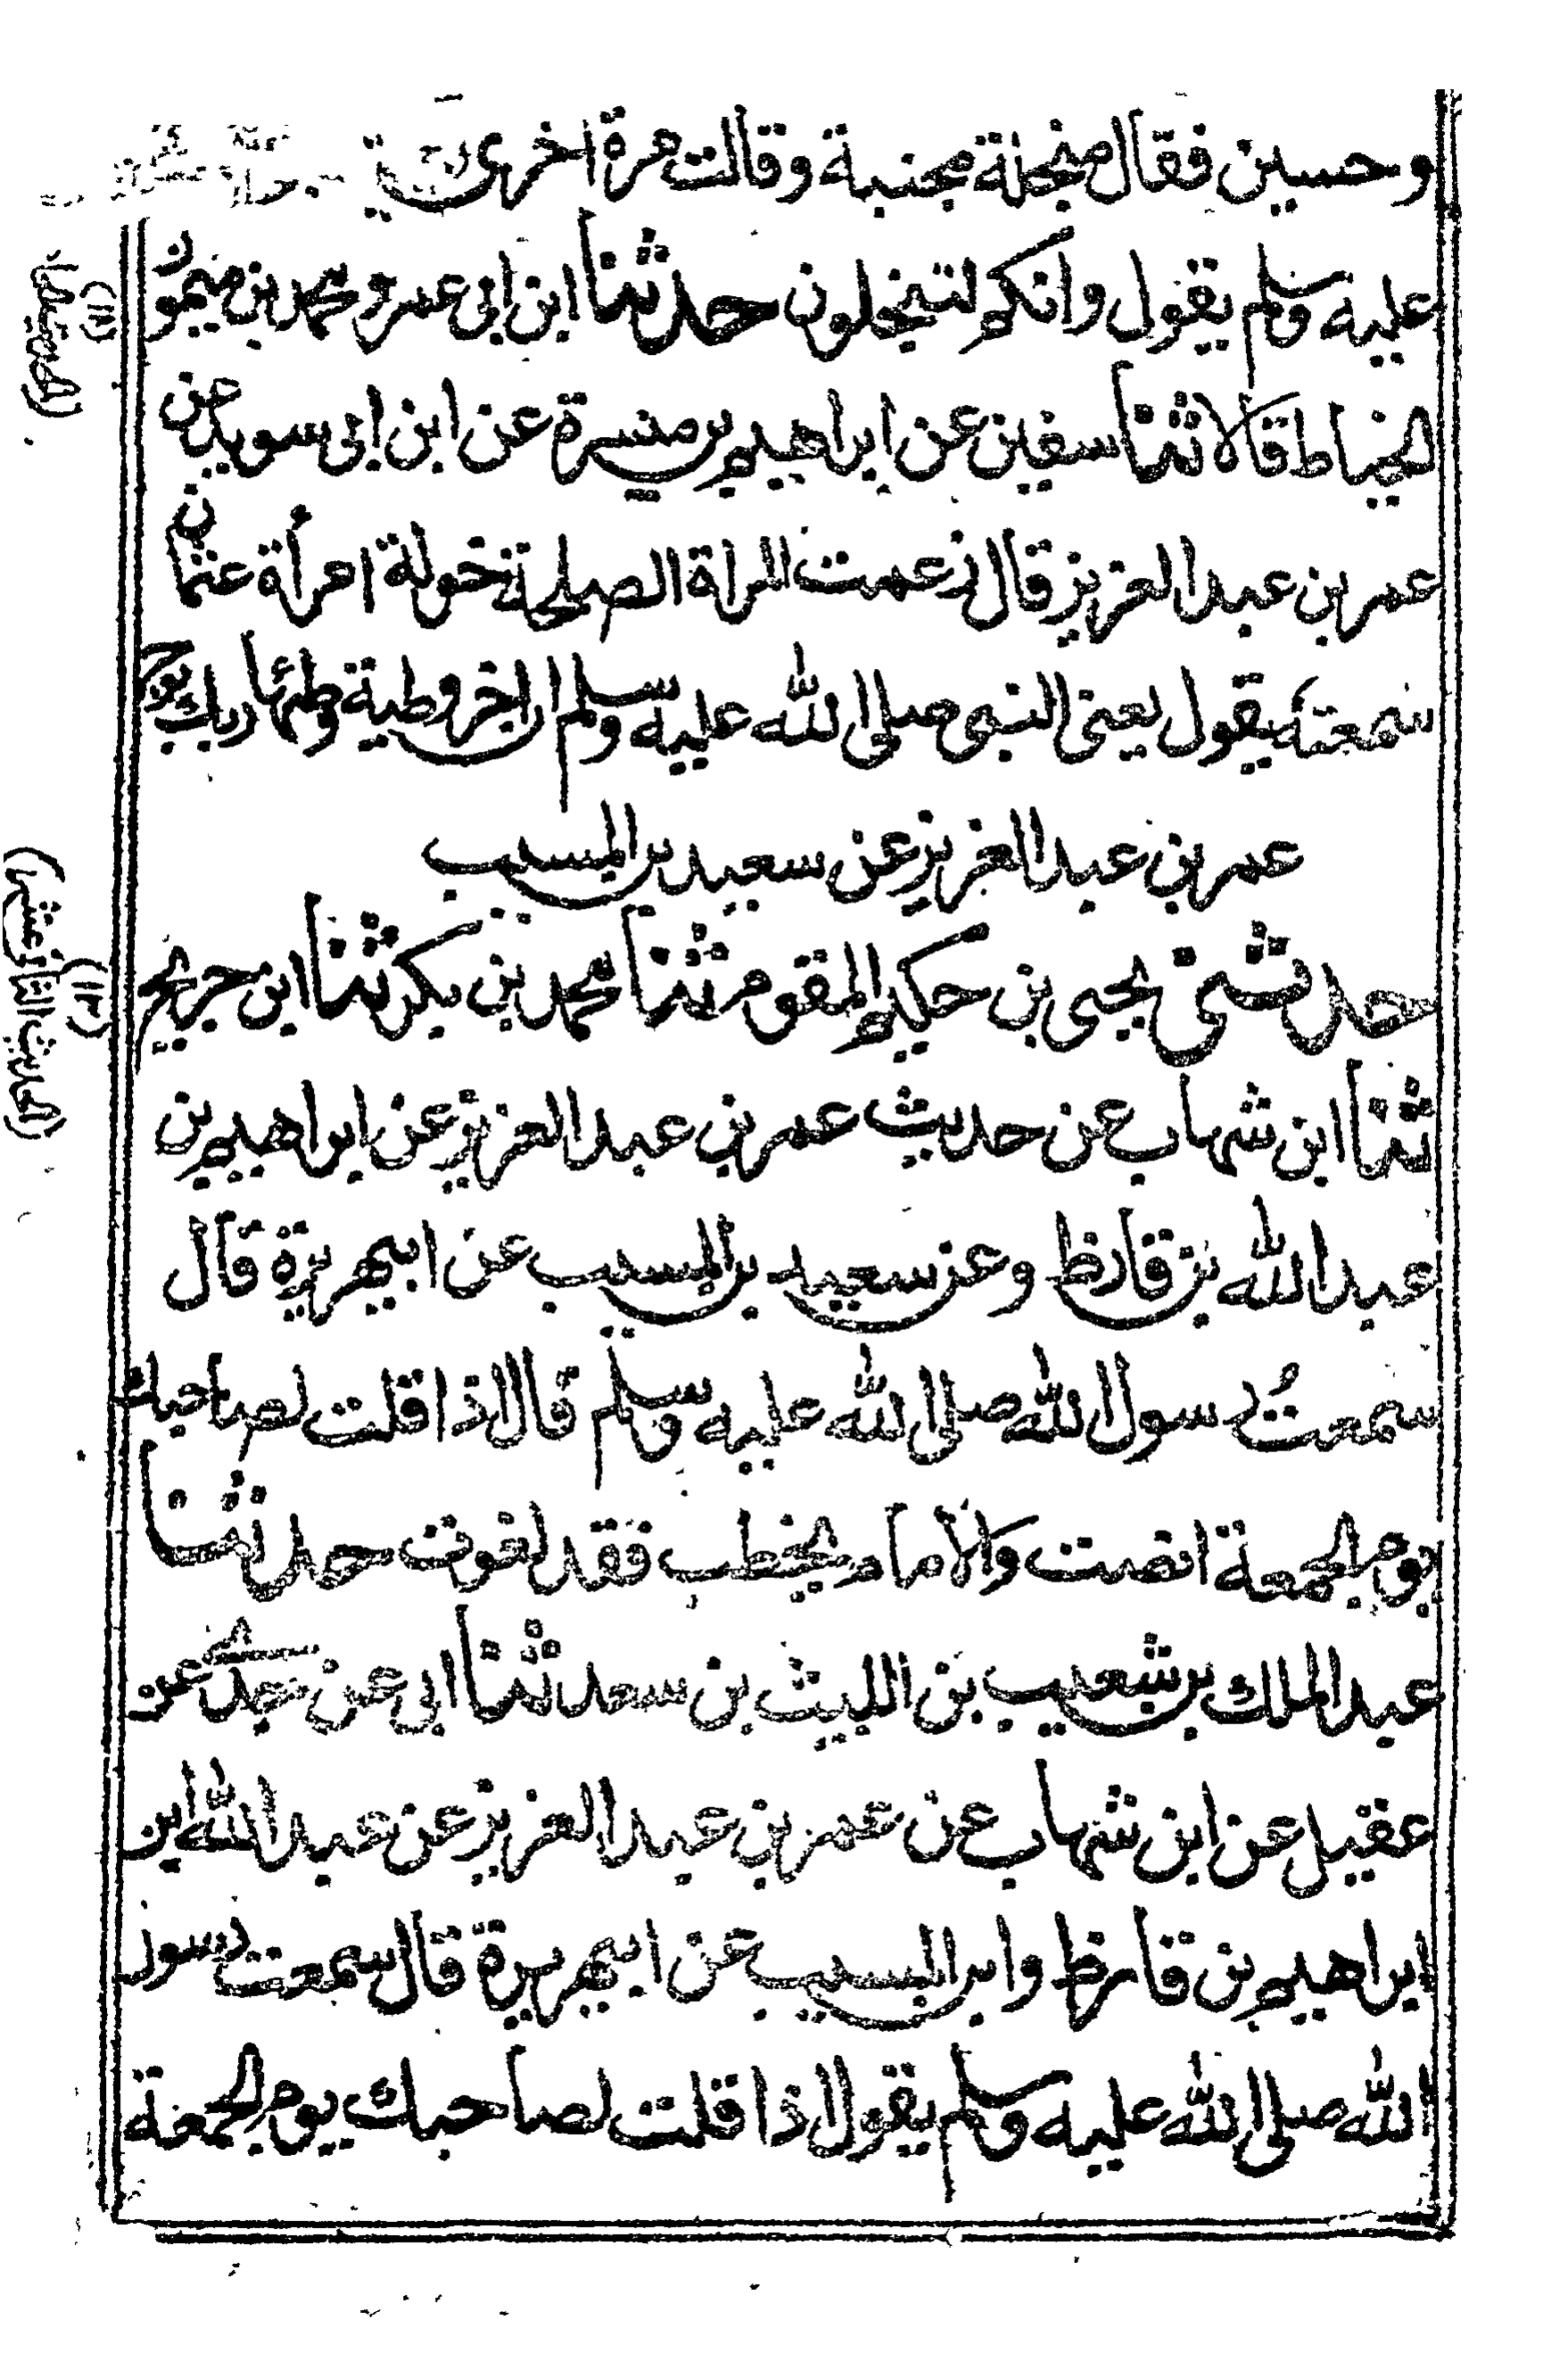 وحسين فقال مبخلة مجبنة وقالت مرة اخرى
عليه وسلم يقول وانكم لتبخلون حدثنا ابن ابى عمر ومحمد بن ميمون
الخياط قالا ثنا سفين عن ابراهيم بن ميسرة عن ابن ابى سويد عن
عمر بن عبد العزيز قال زعمت المراة الصلحة خولة امرأة عثمان
سمعته يقول يعنى النبى صلى الله عليه وسلم ان اخر وطية وطئها ربك بوج
عمر بن عبد العزيز عن سعيد بن المسيب
حدثنى يحيى بن حكيم المقوم ثنا محمد بن بكر ثنا ابن جريج
ثنا ابن شهاب عن حديث عمر بن عبد العزيز عن ابراهيم بن
عبد الله بن قارظ وعن سعيد بن المسيب عن ابى هريرة قال
سمعتُ رسول الله صلى الله عليه وسلم قال اذا قلت لصاحبك
يوم الجمعة انصت والامام يخطب فقد لغوت حدثنا
عبد الملك بن شعيب بن الليث بن سعد ثنا ابى عن جدى عن
عقيل عن ابن شهاب عن عمر بن عبد العزيز عن عبد الله ابن
ابراهيم بن قارظ وابن المسيب عن ابى هريرة قال سمعت رسول
الله صلى الله عليه وسلم يقول اذا قلت لصاحبك يوم الجمعة